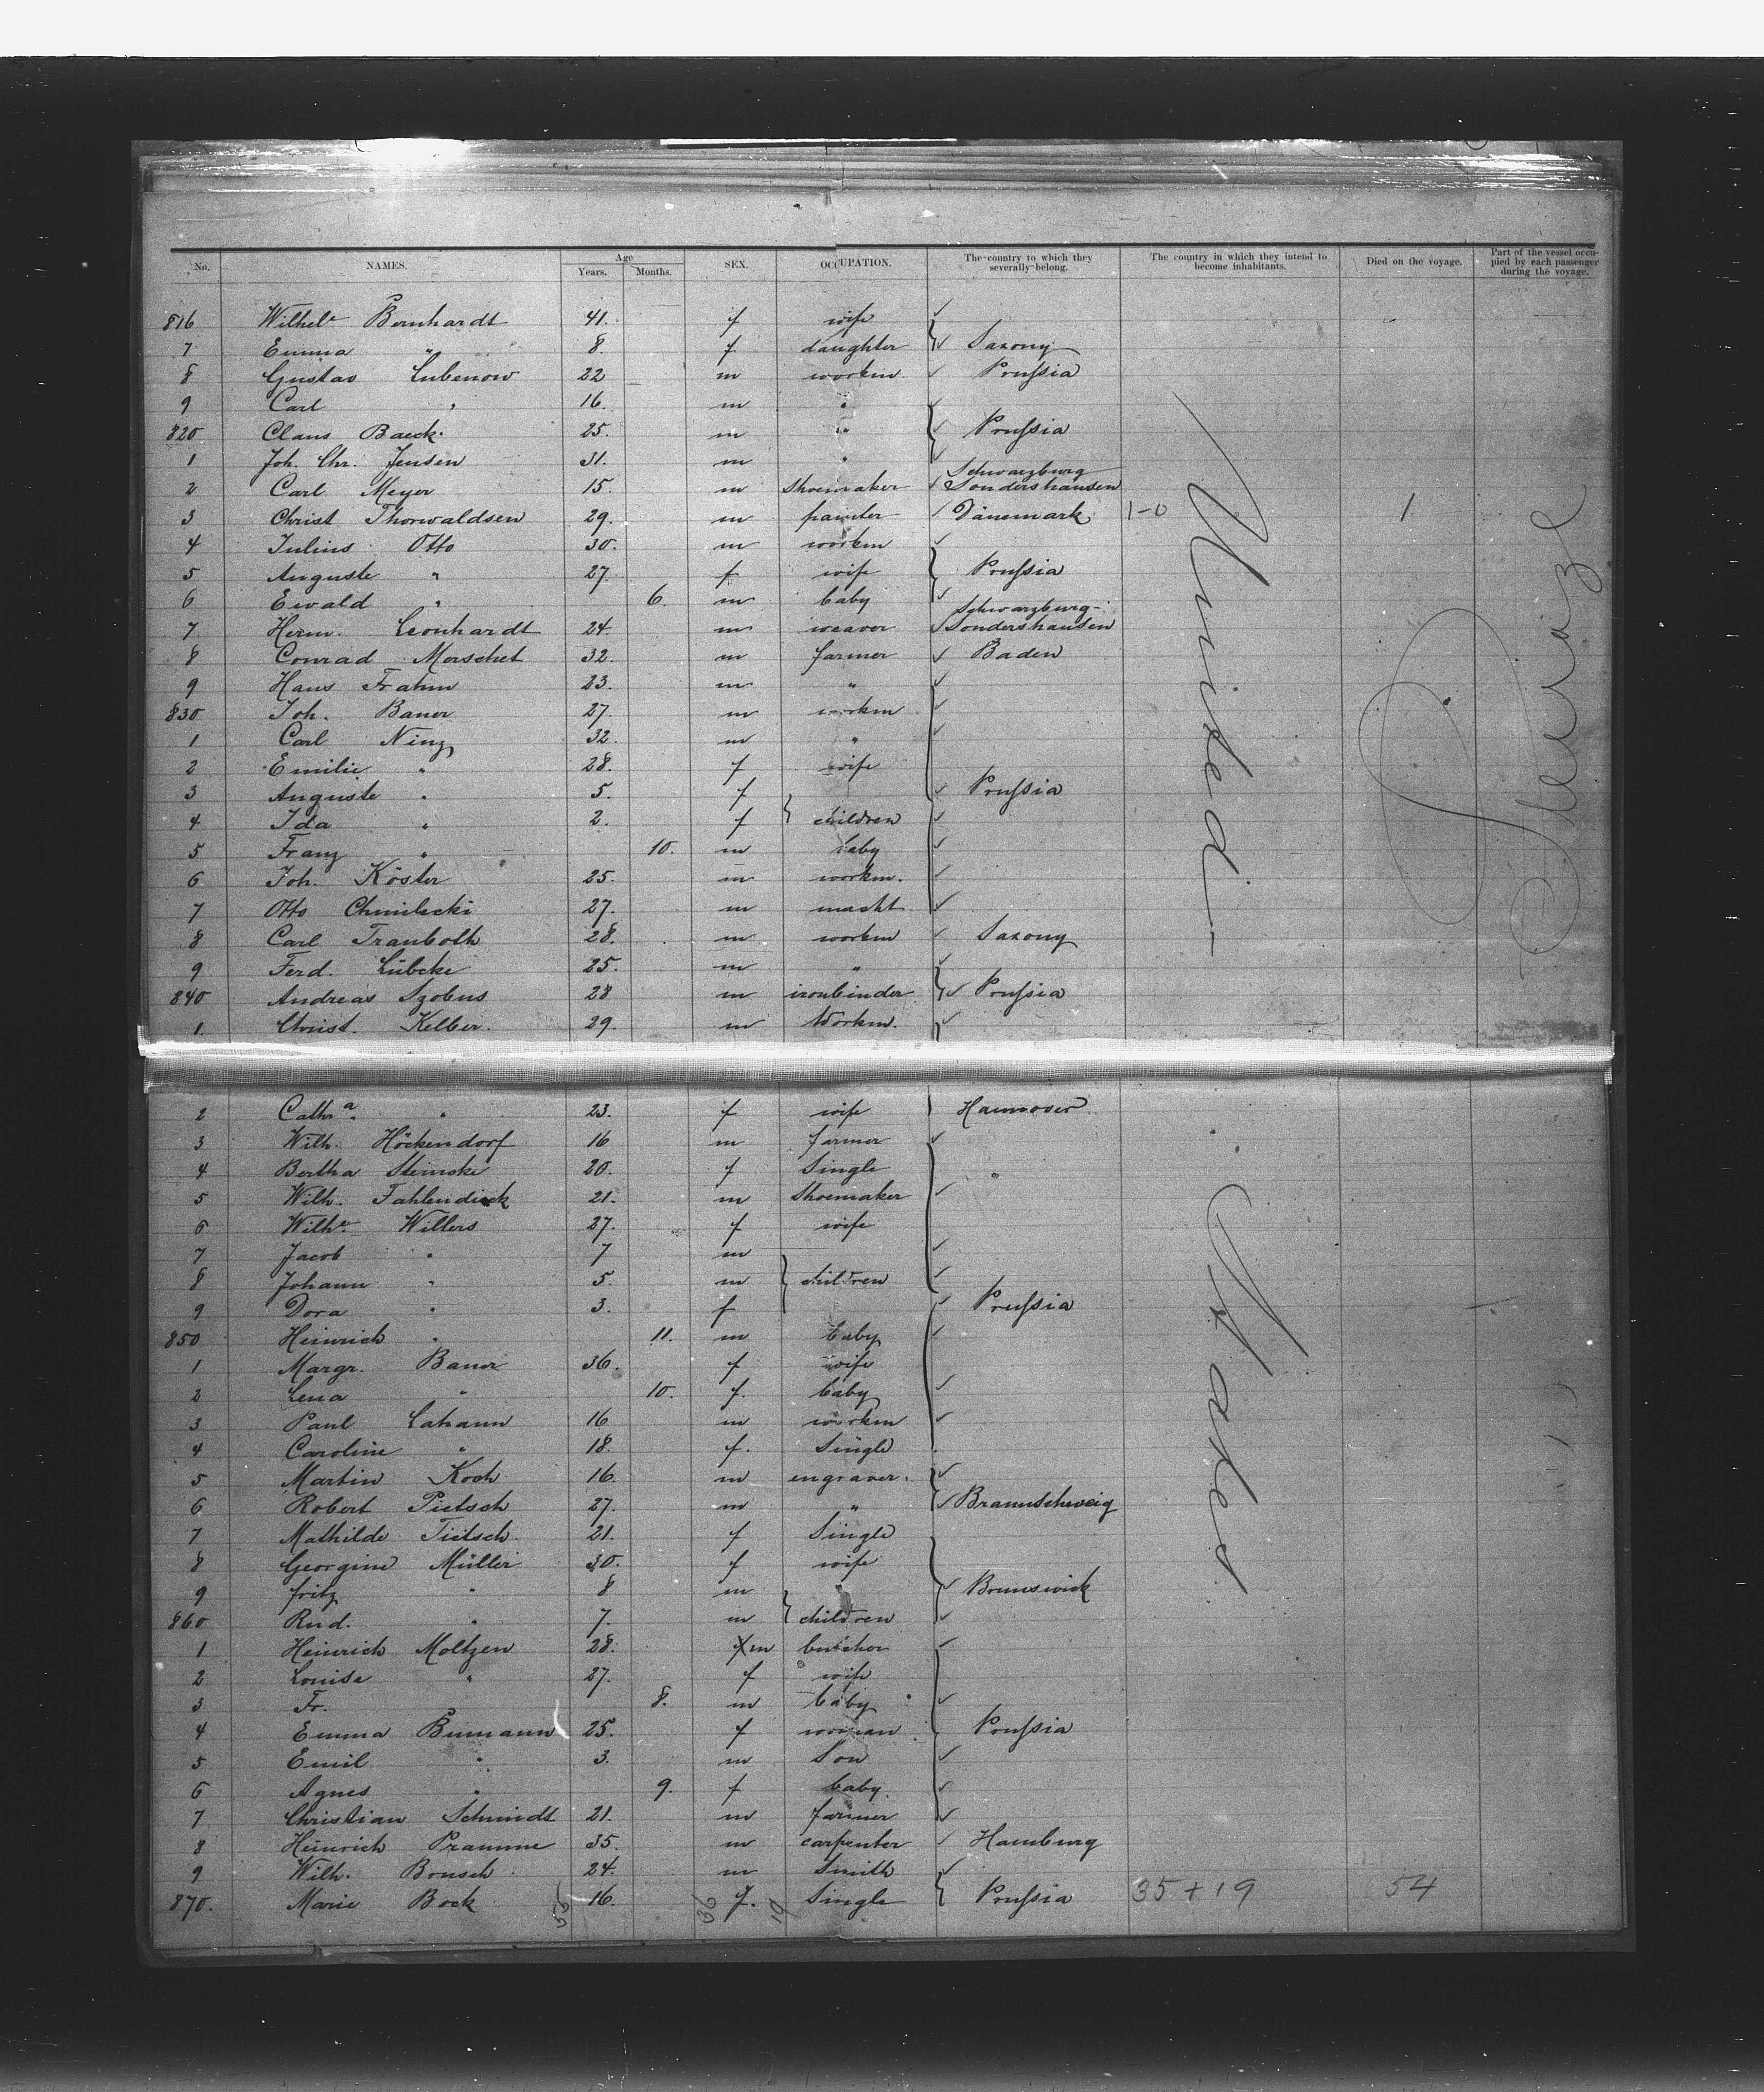 No. NAMES. Age Years. Months. SEX. OCCUPATION. The country to which they severally belong. The country in which they intend to become inhabitants. Died on the voyage. Part of the vessel occupied by each passenger during the voyage.
816 Wilhe Bernhardt 41. f wife
7 Emma " 8. f daughter Saxony
8 Gustav Lubenow 22 m workm. Prussia
9 Carl " 16. m "
820 Claus Baeck. 25. m " Prussia
1 Joh. Chr. Jensen 31. m "
2 Carl Meyer 15. m shoemaker Schwarzburg Sondershausen
3 Christ Thorwaldsen 29. m painter Dänemark 1-0 1
4 Julius Otto 30. m workm
5 Auguste " 27. f wife Prussia
6 Ewald " 6. m baby
7 Herm. Leonhardt 24. m weaver Schwarzburg-Sondershausen
8 Conrad Merschet 32. m farmer Baden
9 Hans Frahm 23. m "
830 Joh. Bauer 27. m workm
1 Carl Ninz 32. m "
2 Emilie " 28. f wife
3 Auguste " 5. f Prussia
4 Ida " 2. f children
5 Franz " 10. m baby
6 Joh. Köster 25. m workm.
7 Otto Chmilecki 27. m macht
8 Carl Trauboth 28. m workm Saxony
9 Ferd. Lübcke 25. m "
840 Andreas Szobus 28 m ironbinder Prussia
1. Christ. Kelber. 29. m Workm.
2 Cathra " 23. f wife Hannover
3 Wilh. Höckendorf 16 m farmer
4 Bertha Steincke 20. f Single "
5 Wilh. Fahlendieck 21. m Shoemaker
6 Wilhe Willers 27. f wife
7 Jacob " 7 m
8 Johann " 5. m children
9 Dora " 3. f Prussia
850 Heinrich " 11. m baby
1 Margr. Bauer 36. f wife
2 Lena " 10. f. baby
3 Paul Lahann 16 m workm
4 Caroline " 18. f. Single
5 Martin Koch 16. m engraver.
6 Robert Pietsch 27. m " Braunschweig
7 Mathilde Tietsch. 21. f Single
8 Georgine Müller 30. f wife
9 Fritz " 8 m Brunswick
860 Rud. " 7. m children
1 Heinrich Moltzen 28. m butcher
2 Louise " 27. f wife
3 Fr. 8. m baby
4 Emma Bumann 25. f woman Prussia
5 Emil " 3. m Son
6 Agnes " 9. f baby.
7 Christian Schmidt 21. m farmer
8 Heinrich Pramme 35. m carpenter Hamburg
9 Wilh. Brusch 24. m Smith
870. Marie Bock 16. f. Single Prussia 35 + 19 54
55 36 19
United States